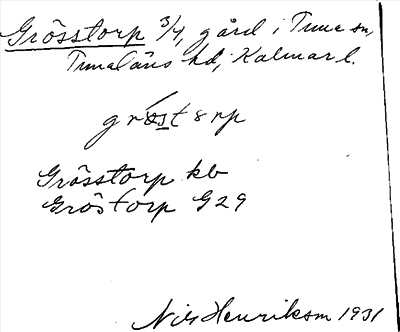 Grösstorp 3/4, gård i Tuna sn,
Tunaläns hd, Kalmar l.
gröstorp
Grösstorp kb
Gröstorp G29
Nils Henriksson 1931